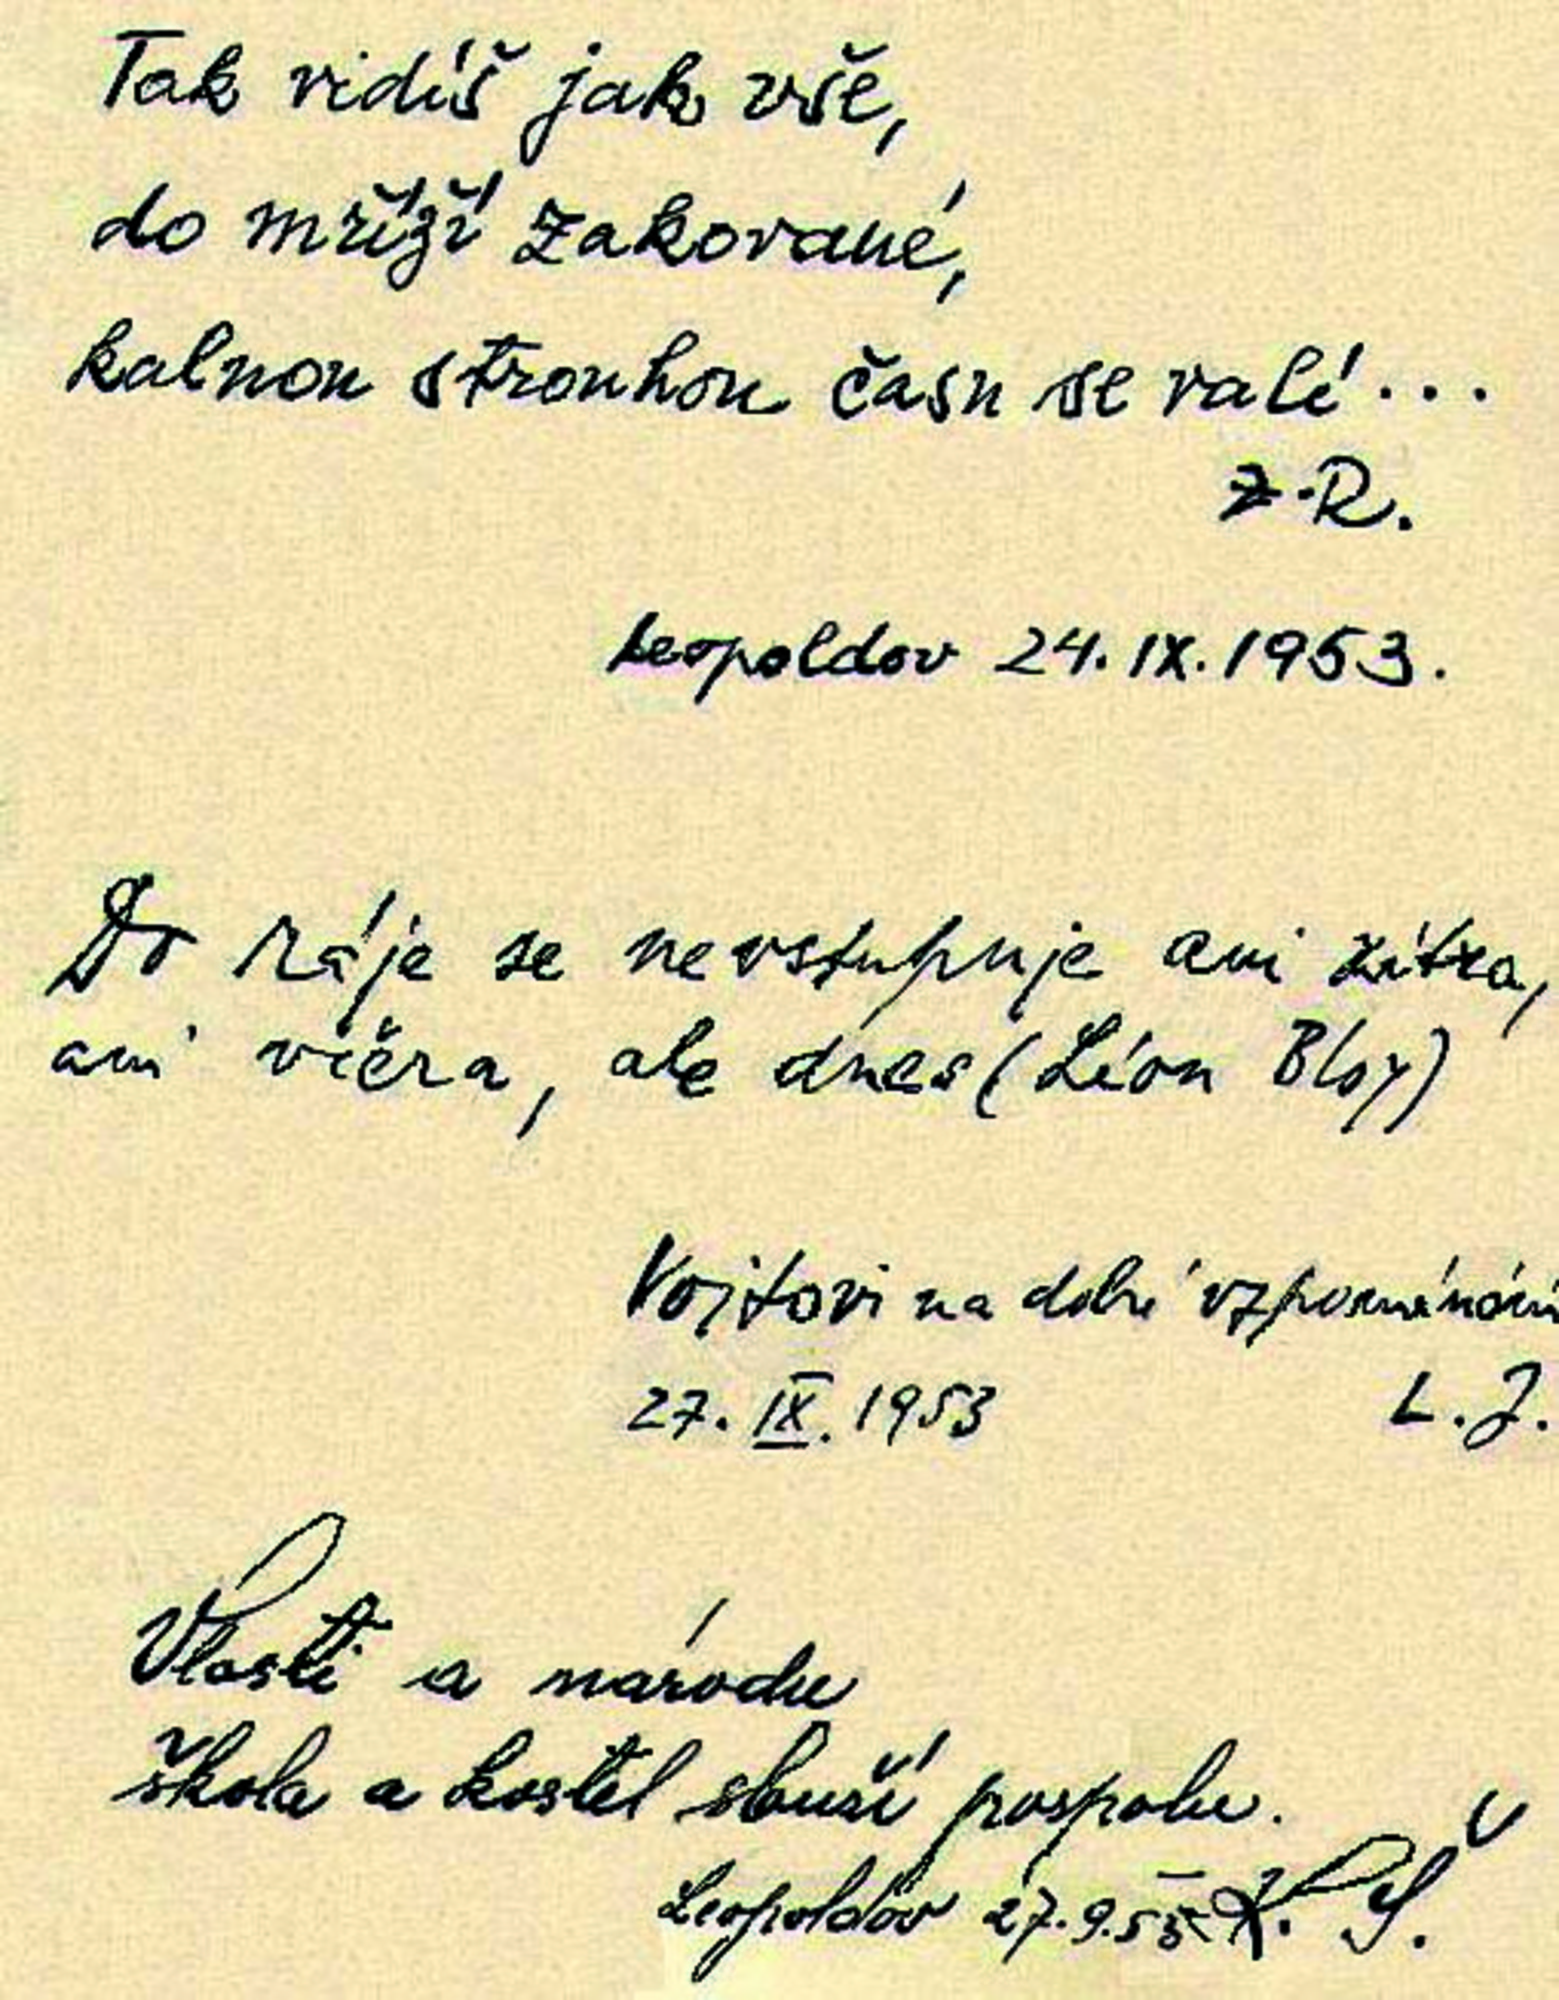 Tak vidíš jak vše,
do mříží zakované,
kalnou strouhou času se valí...
Z.R.
Leopoldov 24.IX.1953.
Do ráje se nevstupuje ani zítra,
ani včera, ale dnes (Léon Bloy)
Vojtovi na dobré vzpomínání
27. IX. 1953 L.J.
Vlasti a národu
škola a kostel slouží pospolu.
Leopoldov 27.9.53 K. Š.